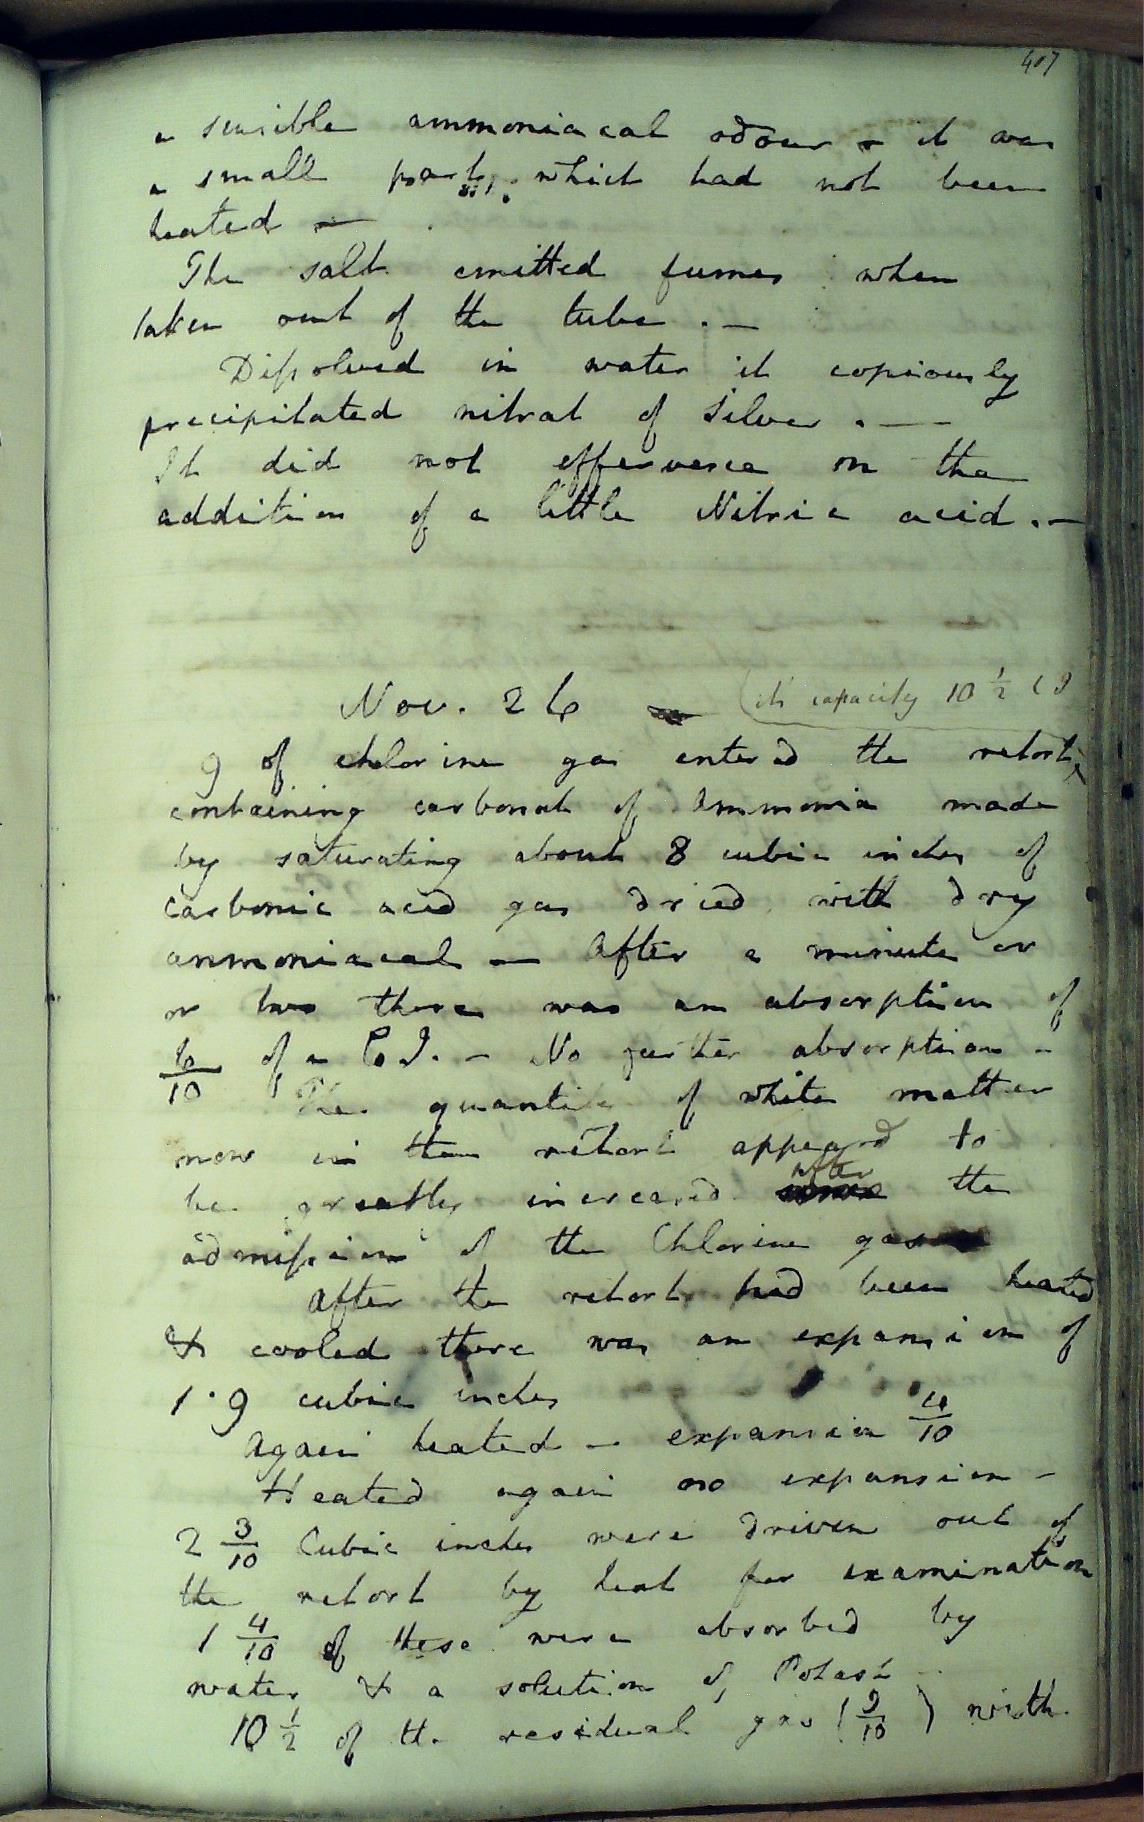 407
a sensible ammoniacal odour & it was
a small part, which had not been
heated —
The salt emitted fumes when
taken out of the tube. —
Dissolved in water it copiously
precipitated nitrat of silver. —
It did not effervesce on the
addition of a little Nitric acid. —
Nov. 26 (its capacity 10 1/2 C I
9 of chlorine gas entered the retort,
containing carbonat of Ammonia made
by saturating about 8 cubic inches of
carbonic acid gas dried with dry
ammoniacal — After a minute or
or two there was an absorption of
6/10 of a C I. — No further absorption —
The quantity of white matter
now in the retort appeard to
be greatly increased after the
admission of the Chlorine gas
After the retort had been heated
& cooled there was an expansion of
1.9 cubic inches
Again heated — expansion 4/10
Heated again no expansion —
2 3/10 Cubic inches were driven out of
the retort by heat for examination
1 4/10 of these were absorbed by
water & a solution of Potash
10 1/2 of the residual gas (9/10) with